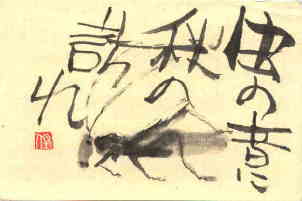 虫の音に
秋の
訪れ